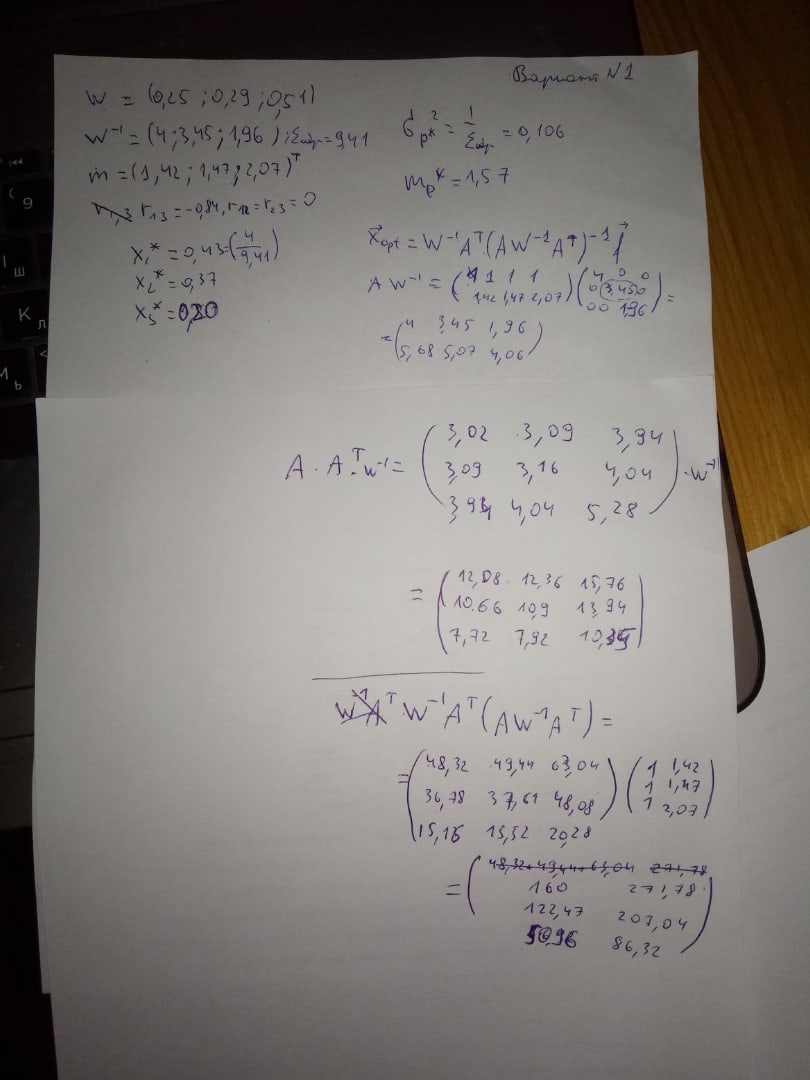 Вариант N1
W = (0,25 ; 0,29 ; 0,51)
W⁻¹ = (4 ; 3,45 ; 1,96) ; Σ = 9,41
m = (1,42 ; 1,47 ; 2,07)ᵀ
r₁₃ = -0,84, r₁₂ = r₂₃ = 0
x₁* = 0,43 = (4/9,41)
x₂* = 0,37
x₃* = 0,20
σ²ₚ* = 1/Σ = 0,106
mₚ* = 1,57
x⃗opt = W⁻¹Aᵀ(AW⁻¹Aᵀ)⁻¹
A W⁻¹ = (1 1 1
1,42 1,47 2,07) (4 0 0
0 3,45 0
0 0 1,96) =
= (4 3,45 1,96
5,68 5,07 4,06)
A · Aᵀ · W⁻¹ = (3,02 3,09 3,94
3,09 3,16 4,04
3,94 4,04 5,28) · W⁻¹
= (12,08 12,36 15,76
10.66 10,9 13,94
7,72 7,92 10,35)
W⁻¹Aᵀ W⁻¹Aᵀ(AW⁻¹Aᵀ) =
= (48,32 49,44 63,04
36,78 37,61 48,08
15,16 15,52 20,28) (1 1,42
1 1,47
1 2,07)
= (48,32+49,44+63,04 271,78
160 271,78
122,47 207,04
50,96 86,32)